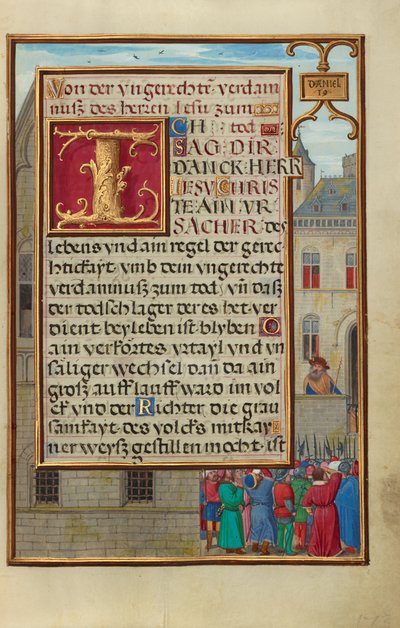 DANIEL
19
Von der vngerechtē verdam
nusz des herren Iesu zum
ICH tod
SAG DIR
DANCK HERR
IESV CHRIS
TE AIN VR
SACHER des
lebens vnd ain regel der gerec
htickayt vmb dein vngerechte
verdamnusz zum tod vn̄ dasz
der todschlager der es het ver
dient bey leben ist blyben O
ain verkórtes vrtayl vnd vn
sáliger wechsel dan̄ da ain
grosz aufflauff ward im vol
ck vnd der Richter die grau
samkayt des volcks mit kay
ner weysz gestillen mocht ist